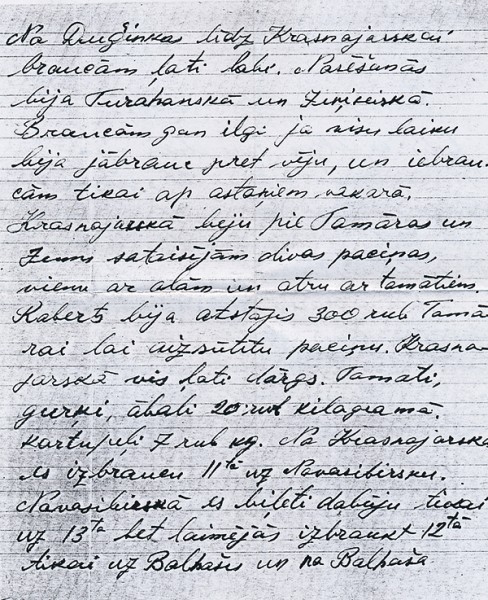 No Dudinkas līdz Krasnajarskai
braucām ļoti labi. Nosēšanās
bija Turahanskā un
Braucām gan ilgi jo visu laiku
bija jābrauc pret vēju, un iebrau-
cām tikai ap astoņiem vakarā.
Krasnajarskā biju pie Tamāras un
sataisījām divas paciņas,
vienu ar olām un otru ar tomātiem.
Roberts bija atstājis 300 rub Tamā
rai lai aizsūtītu paciņu. Krasna-
jarskā vis loti dārgs. Tomati,
gurķi, āboli 20 rub kilogramā.
Kartupeļi 7 rub kg. No Krasnajarska
es izbraucu 11tā uz Novasibirsku.
Novasibirskā es bileti dabūju tikai
uz 13to bet laimējās izbraukt 12tā
tikai uz Balhašu un no Balhaša